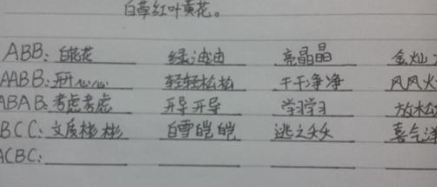 白草红叶黄花。
ABB: 白花花 绿油油 亮晶晶 金灿
AABB: 开开心心 轻轻松松 干干净净 风风火
ABAB: 考虑考虑 开导开导 学习学习 放松
BCC: 文质彬彬 白雪皑皑 逃之夭夭 喜气洋
ACBC: